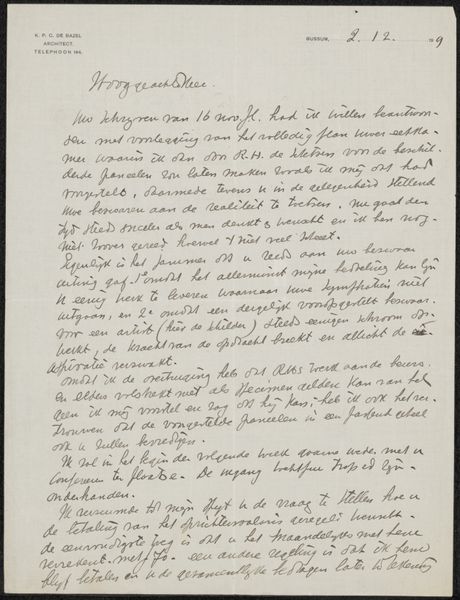 K. P. C. DE BAZEL
ARCHITECT.
TELEPHOON 144.
BUSSUM, 2.12. 9
Hooggeachte Heer.
Uw schrijven van 16 nov. jl. had ik willen beantwoor-
den met voorlegging van het volledig plan uwer eetka-
mer waarin ik dan door R.H. de schetsen voor de beschil-
derde paneelen zou laten maken zooals ik mij dat had
voorgesteld, daarmede tevens u in de gelegenheid stellend
uwe bezwaren aan de realiteit te toetsen. nu gaat den
tijd steeds sneller als men denkt & verwacht en ik ben nog
niet zoover gereed hoewel 't niet veel scheelt.
Eigenlijk is het jammer dat u reeds aan uw bezwaar
uiting gaf. 1° omdat het allerminst mijne bedoeling kan zijn
u eenig werk te leveren waarnaar uwe sympathieën niet
uitgaan, en 2° omdat een dergelijk vooropgesteld bezwaar
voor een artist (hier de schilder) steeds eenigen schroom be-
werkt, de kracht van de opdracht breekt en allicht de
aspiratie verzwakt.
omdat ik de overtuiging heb dat RHs werk aan de beurs
en elders volstrekt niet als specimen gelden kan van het
geen ik mij voorstel en zag dat hij kan; heb ik ook het ver-
trouwen dat de voorgestelde paneelen in een passend geheel
ook u zullen bevredigen.
Ik zal in het begin der volgende week gaarne weder met u
confereeren te. De ingang trap ed zijn
onderhanden.
Ik verzuimde tot mijn spijt u de vraag te stellen hoe u
de betaling van het opzichterssalaris geregeld wenscht.
de eenvoudigste weg is dat u het maandelijks met hem
verrekent. met f - een andere regeling is dat ik hem
blijf betalen en u de gezamenlijke bedragen later in rekening